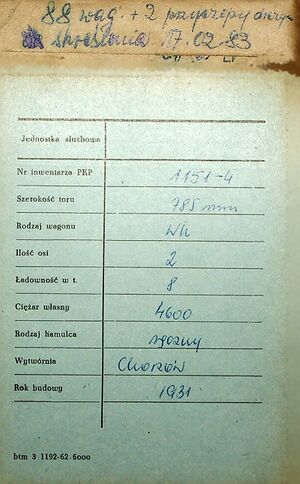 88 wag. + 2 przyczepy
skreślenia 17.02.83
Jednostka służbowa
Nr inwentarza PKP 1151-4
Szerokość toru 785 mm
Rodzaj wagonu Wh
Ilość osi 2
Ładowność w t. 8
Ciężar własny 4600
Rodzaj hamulca ręczny
Wytwórnia Chorzów
Rok budowy 1931
btm 3 1192-62 6000